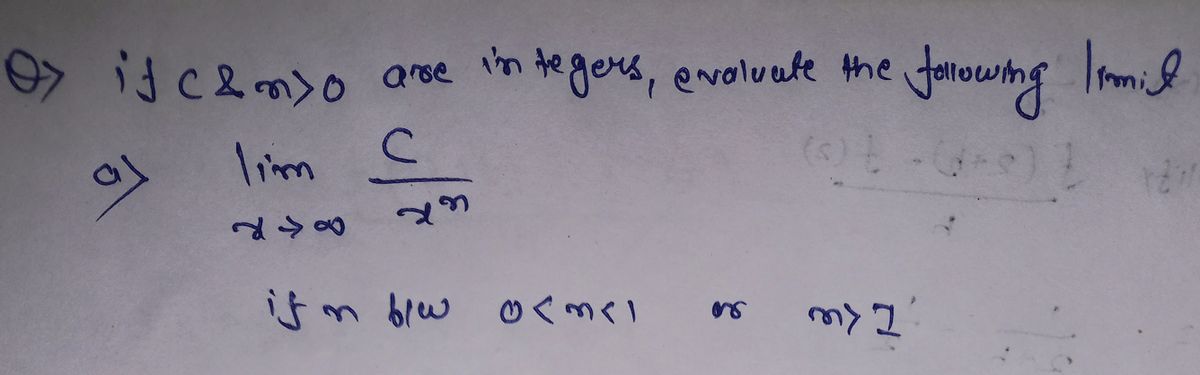 Q> if c & n>0 are integers, evaluate the following limit
a> lim c/xⁿ
x→∞
if n b/w 0<n<1 or n>1